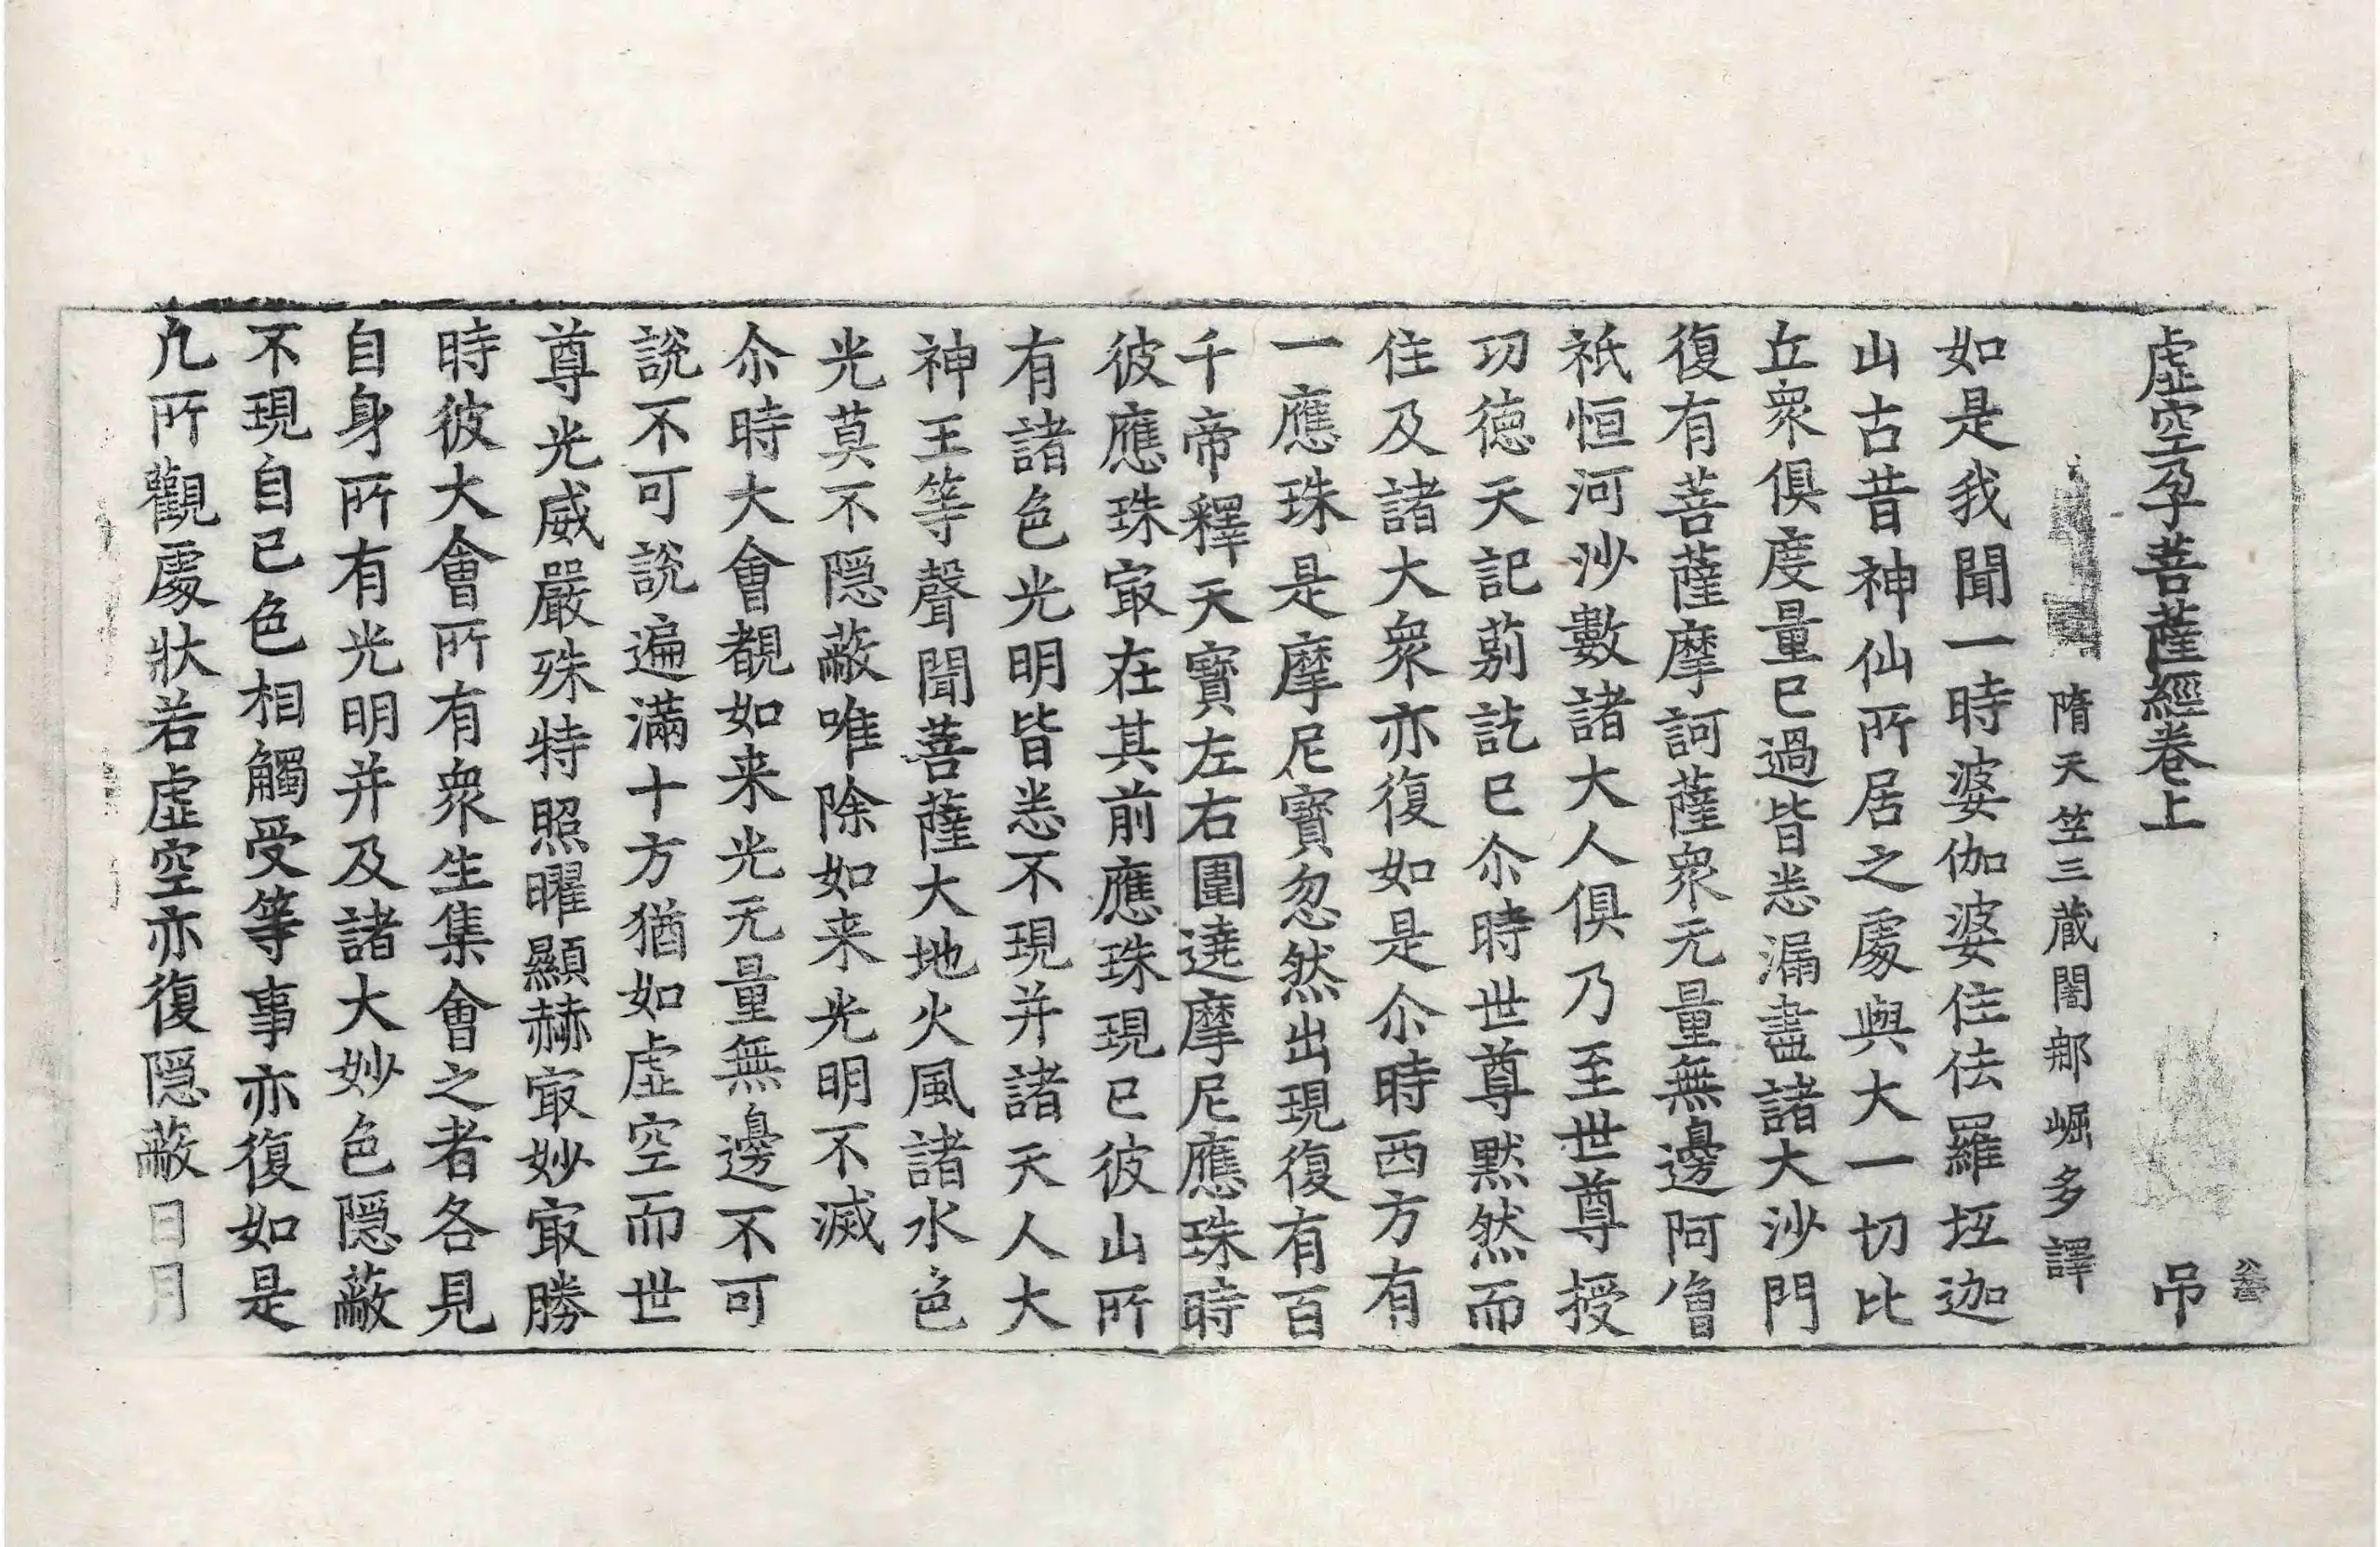 虛空孕菩薩經卷上 吊
隋天竺三蔵闍䣋崛多譯
如是我聞一時婆伽婆住佉羅坻迦
山古昔神仙所居之處與大一切比
丘衆俱度量已過皆悉漏盡諸大沙門
復有菩薩摩訶薩衆无量無邊阿僧
祇恒河沙數諸大人俱乃至世尊授
功徳天記莂訖已尒時世尊黙然而
住及諸大衆亦復如是尒時西方有
一應珠是摩尼寶忽然出現復有百
千帝釋天寶左右圍遶摩尼應珠時
彼應珠㝡在其前應珠現已彼山所
有諸色光明皆悉不現并諸天人大
神王等聲聞菩薩大地火風諸水色
光莫不隱蔽唯除如来光明不滅
尒時大會覩如来光无量無邊不可
說不可說遍滿十方猶如虛空而世
尊光威嚴殊特照曜顯赫㝡妙㝡勝
時彼大會所有衆生集會之者各見
自身所有光明并及諸大妙色隱蔽
不現自已色相觸受等事亦復如是
凡所觀處狀若虛空亦復隱蔽日月